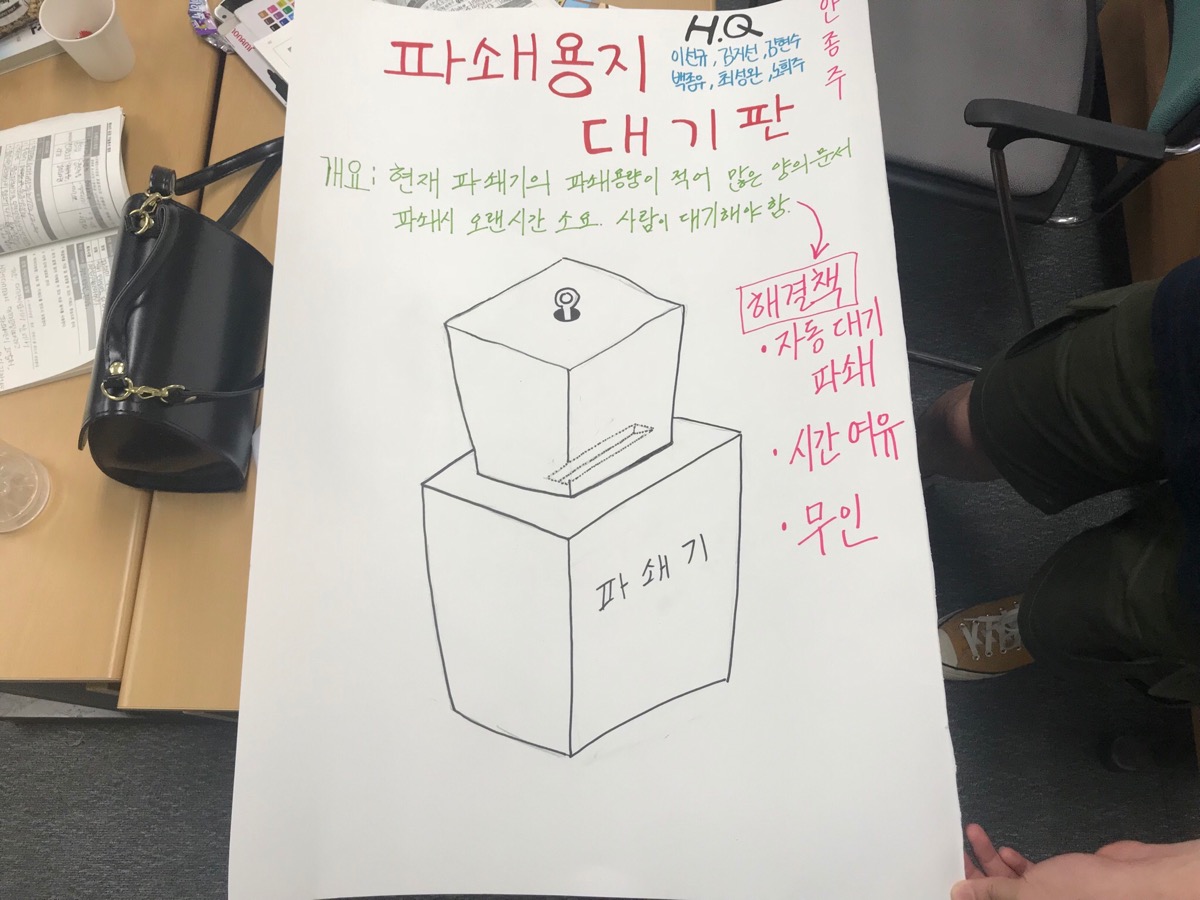 H.Q
파쇄용지
이선규, 김지선, 김현수
백종유, 최성완, 노휘주
안종주
대기판
개요: 현재 파쇄기의 파쇄용량이 적어 많은 양의 문서
파쇄시 오랜시간 소요. 사람이 대기해야 함.
해결책
· 자동 대기
파쇄
· 시간 여유
· 무인
파쇄기